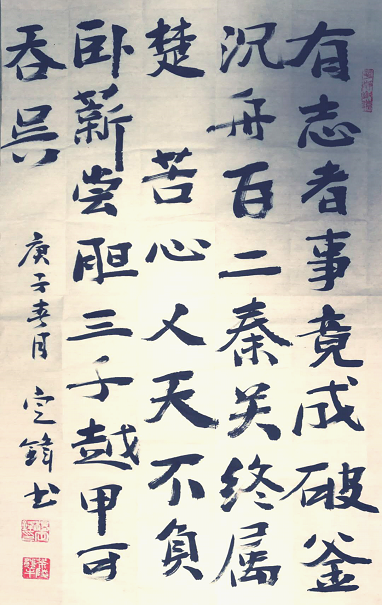 有志者事竟成破釜
沉舟百二秦关终属
楚 苦心人天不负
卧薪尝胆三千越甲可
吞吴
庚子春月 定锋书